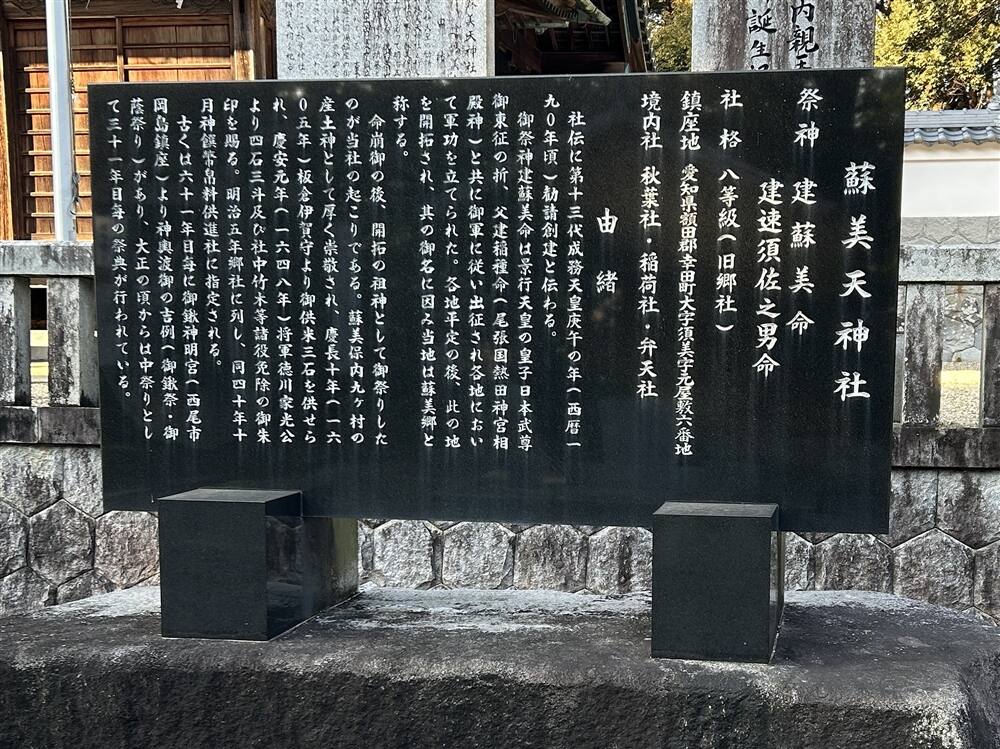 蘇美天神社
祭神 建蘇美命
建速須佐之男命
社格 八等級(旧郷社)
鎮座地 愛知県額田郡幸田町大字須美字元屋敷六番地
境内社 秋葉社・稲荷社・弁天社
由緒
社伝に第十三代成務天皇庚午の年(西暦一
九0年頃)勧請創建と伝わる。
御祭神建蘇美命は景行天皇の皇子日本武尊
御東征の折、父建稲種命(尾張国熱田神宮相
殿神)と共に御軍に従い出征され各地におい
て軍功を立てられた。各地平定の後、此の地
を開拓され、其の御名に因み当地は蘇美郷と
称する。
命崩御の後、開拓の祖神として御祭りした
のが当社の起こりである。蘇美保内九ヶ村の
産土神として厚く崇敬され、慶長十年(一六
0五年)板倉伊賀守より御供米三石を供せら
れ、慶安元年(一六四八年)将軍徳川家光公
より四石三斗及び社中竹木等諸役免除の御朱
印を賜る。明治五年郷社に列し、同四十年十
月神饌幣帛料供進社に指定される。
古くは六十一年目毎に御鍬神明宮(西尾市
岡島鎮座)より神輿渡御の古例(御鍬祭・御
蔭祭り)があり、大正の頃からは中祭りとし
て三十一年目毎の祭典が行われている。
内親王
誕生
美天神社